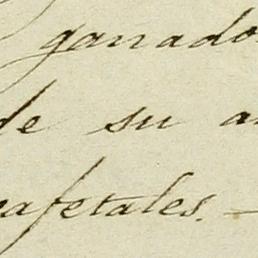 ganado
de su a
cafetales. —